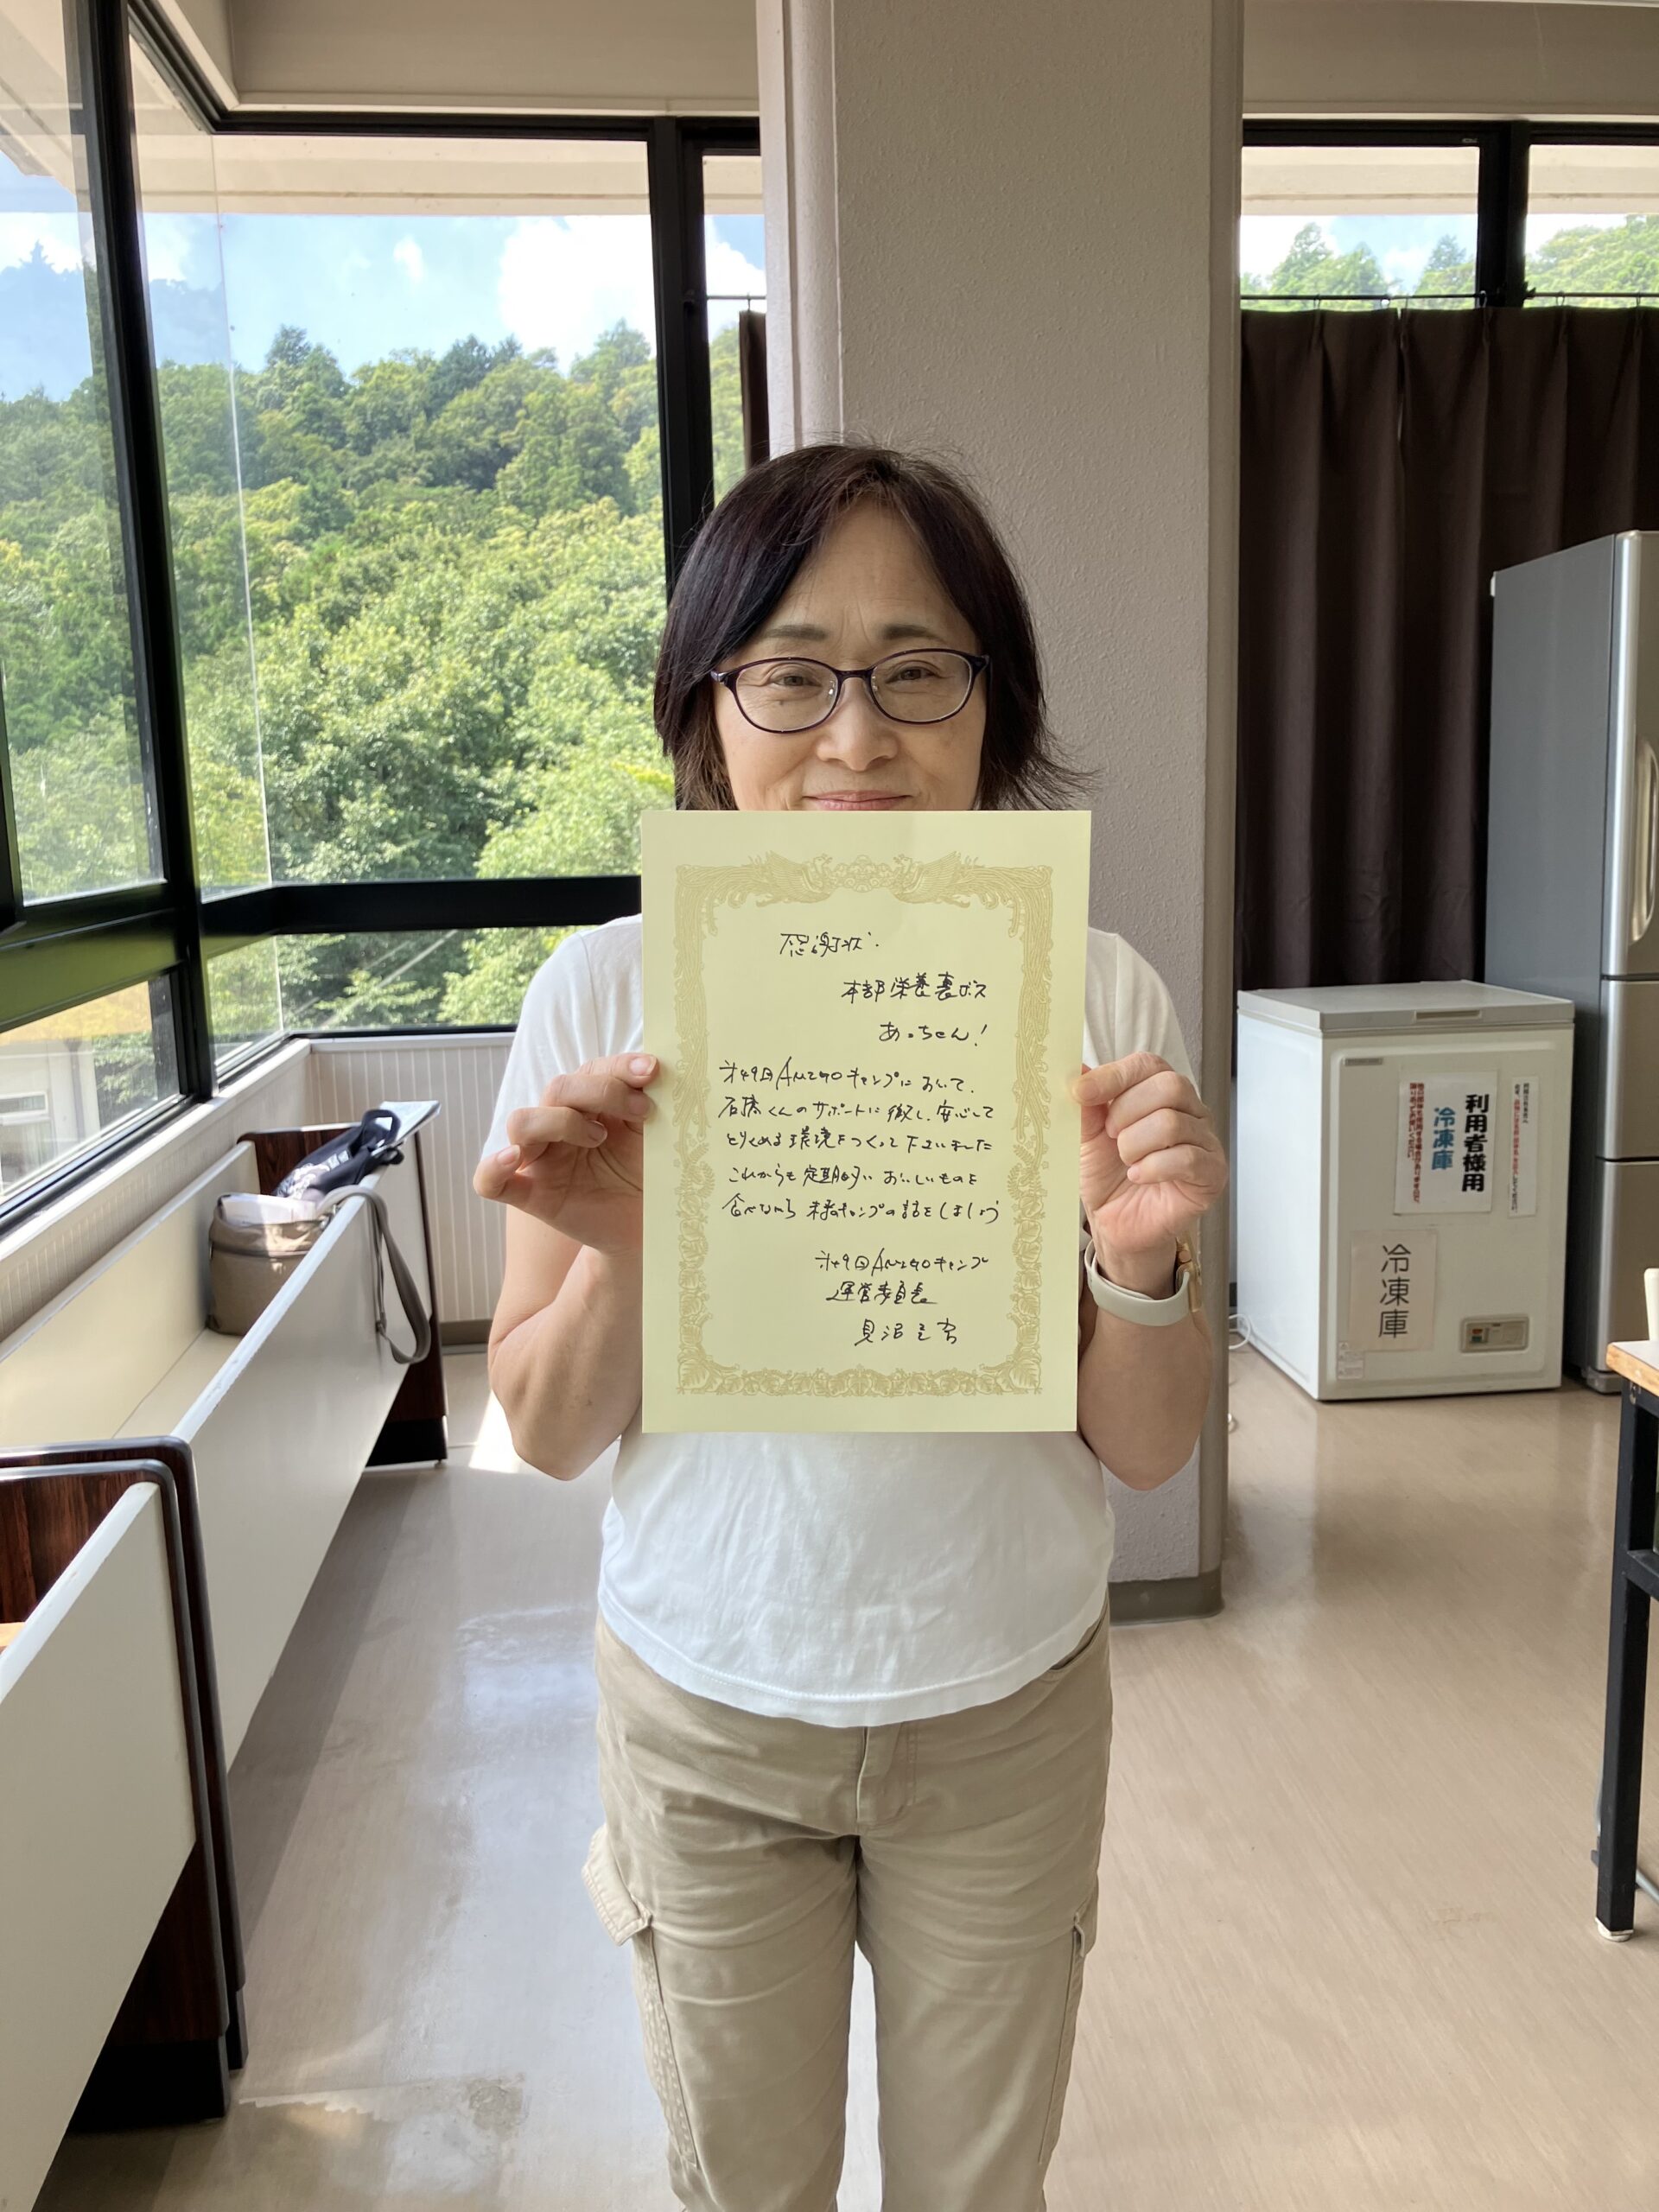 感謝状
本部栄養裏ボス
あっちゃん!
第49回AMZGOキャンプにおいて、
くんのサポートに徹し、安心して
とりくめる環境をつくって下さいました
これからも定期的においしいものを
食べながらキャンプの話をしましょう
第49回AMZGOキャンプ
運営委員長
見沼
利用者様用
冷凍庫
冷凍庫